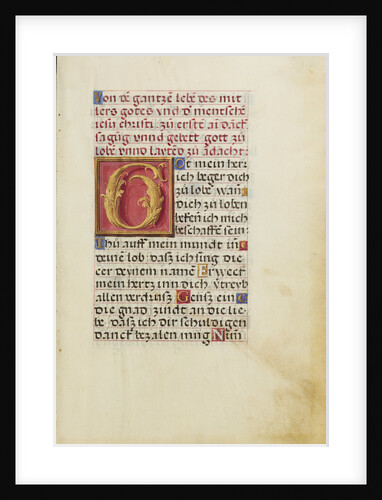 Von dē gantzē lebē des mit
lers gotes vnd dē mentschē
iesu christi zů erstē ai dāck
sagūg vnnd gebett gott zů
lobē vnnd
G Ot mein herr
ich beger dich
zů lobē wañ
dich zů loben
bekēn ich mich
beschaffē sein
Thů auff mein mundt in
deinē lob dasz ich sing die
eer deynem namē Erweck
mein hertz inn dich vtreyb
allen verdrusz Geusz ein
die gnad zindt an die lie
be dasz ich dir schuldigen
danck bezalen mug Nim